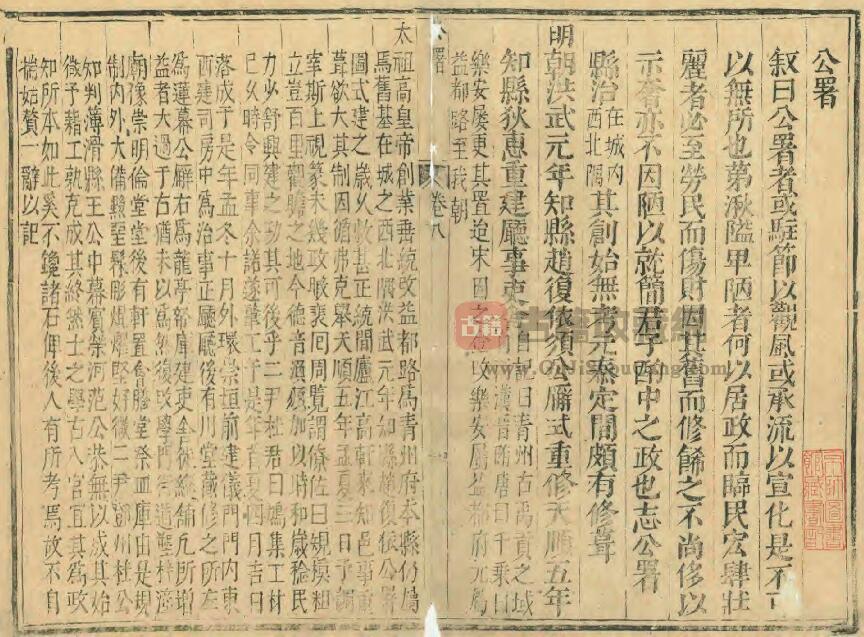 公署
叙曰公署者或駐節以觀風或承流以宣化是不可
以無所也第湫隘卑陋者何以居政而臨民宏肆壯
麗者必至勞民而傷財因其舊而修餙之不尚侈以
示奢亦不因陋以就簡君子酌中之政也志公署
縣治在城内
西北隅其創始無考元泰定間頗有修葺
明朝洪武元年知縣趙復依頒公廨式重修天順五年
知縣狄惠重建廳事吏
自記曰青州古禹貢之域
漢晉隋唐曰千乘曰
樂安屢更其置迨宋因之金改樂安屬益都府元屬
益都路至我朝
公署
卷八
太祖高皇帝創業垂統改益都路爲青州府本縣仍屬
焉舊基在城之西北隅洪武元年知縣趙復依公廨
圖式建之歲久攲甚正統間廬江高軒來知邑事重
葺欲大其制因循弗克舉天順五年孟夏三日予
宰斯上視篆未幾政暇裵回周覽謂僚佐曰規模粗
立豈百里觀瞻之地今德音渙頒加以時和歲稔民
力必舒興建之功其可後乎二尹杜君曰鳩集工材
已久時令同事余諾遂肇工于是年首夏四月吉日
落成于是年孟冬十月外環崇垣前建儀門門内東
西建司房中爲治事正廳廳後有川堂藏修之所左
爲蓮幕公廨右爲龍亭帑庫建吏舍
益者大過于右猶未以爲然復攺學門
廟像崇明倫堂堂後有軒置會膳堂祭血庫由是規
制内外大備黝堊髹彤煥爛堅好微二尹鄧州杜公
知判薄滑縣王公中幕賓榮河范公恭無以成其始
微予藉工孰克成其終然士之學古入官宜其爲政
知所本如此奚不鑱諸石俾後人有所考焉故不自
揣始贅一辭以記
古籍
古籍收藏網